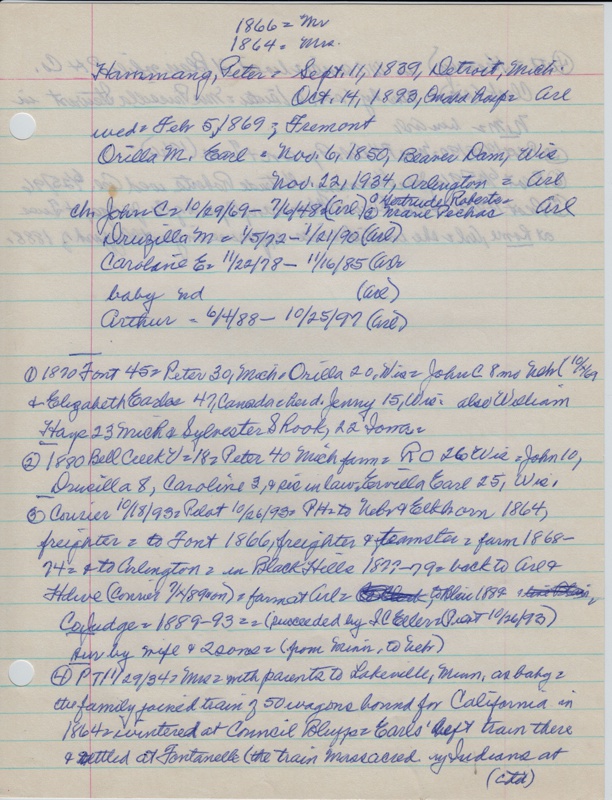 1866 = Mr
1864 = Mrs.
Hammang, Peter = Sept. 11, 1839, Detroit, Mich
Oct. 14, 1893, Omaha Hosp = Arl
wed = Feb 5, 1869 ; Fremont
Orilla M. Earl = Nov. 6, 1850, Beaver Dam, Wis
Nov. 22, 1934, Arlington = Arl
ch John C = 10/29/69 - 7/6/48 (Arl) ① Gertrude Roberts =
② Marie Pechac Arl
Druzilla M = 1/5/72 - 1/21/90 (Arl)
Caroline E = 11/22/78 - 11/16/85 (Arl
baby nd (Arl)
Arthur = 6/4/88 - 10/25/97 (Arl)
① 1870 Font 45 = Peter 30, Mich = Orilla 20, Wis = John C 8 mo Nebr (10/69
& Elizabeth 47, Canada = Jenny 15, Wis = also William
Hays 23 Mich & Sylvester S Rook, 22 Iowa =
② 1880 Bell Creek V = 18 = Peter 40 Mich farm = R O 26 Wis = John 10,
Druscilla 8, Caroline 3, & sis in law Ervilla Earl 25, Wis,
③ Courier 10/18/93 = Pilot 10/26/93 = PH = to Nebr & Elkhorn 1864,
freighter = to Font 1866, freighter & teamster = farm 1868-
74 = & to Arlington = in Black Hills 1877-79 = back to Arl &
(Courier = farm at Arl = to Blair 1889
Co judge = 1889-93 = = (succeeded by I C Eller = Pilot 10/26/93)
sur by wife & 2 sons = (from Minn, to Nebr)
④ PT 11/29/34 = Mrs = with parents to Lakeville, Minn, as baby =
the family joined train of 50 wagons bound for California in
1864 = wintered at Council Bluffs = Earls' left train there
& settled at Fontanelle (the train massacred by Indians at
(ctd)